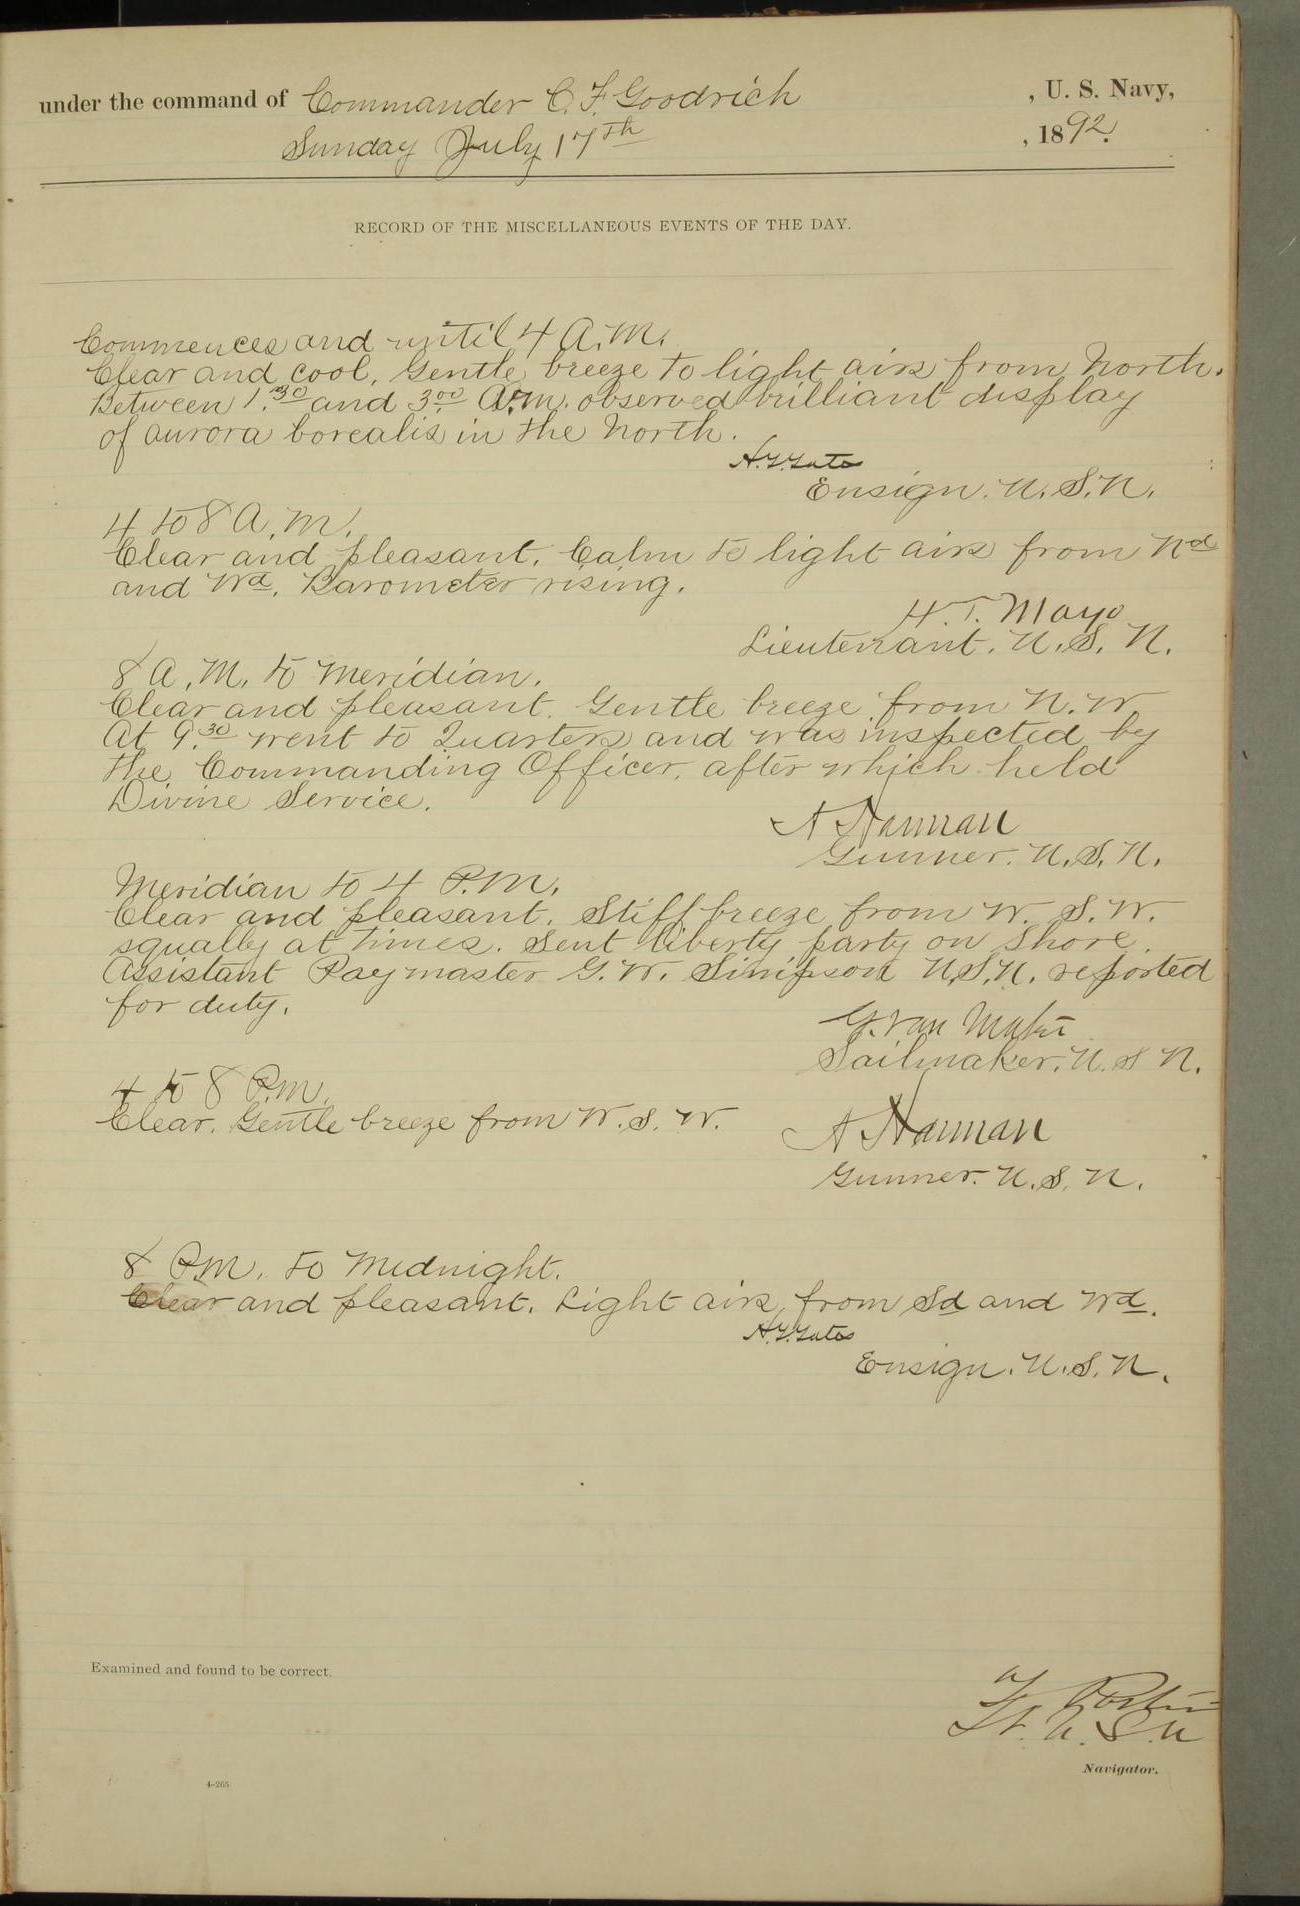 under the command of Commander C. F. Goodrich , U. S. Navy,
Sunday July 17th , 1892.
RECORD OF THE MISCELLANEOUS EVENTS OF THE DAY.
Commences and until 4 A.M.
Clear and cool. Gentle breeze to light airs from North.
Between 1.30 and 3.00 A.M. observed brilliant display
of aurora borealis in the North.
Ensign. U.S.N.
4 to 8 A.M.
Clear and pleasant. Calm to light airs from Nd
and Wd. Barometer rising.
H. T. Mayo
Lieutenant. U.S.N.
8 A.M. to Meridian.
Clear and pleasant. Gentle breeze from N.W
At 9.30 went to Quarters and was inspected by
the Commanding Officer, after which held
Divine Service.
Gunner. U.S.N.
Meridian to 4 P.M.
Clear and pleasant. Stiff breeze from W. S. W.
squally at times. Sent liberty party on shore.
Assistant Paymaster G. W. Simpson U.S.N. reported
for duty.
G. Van
Sailmaker. U. S N.
4 to 8 P.M.
Clear. Gentle breeze from W. S. W.
Gunner. U.S.N.
8 P.M. to Midnight.
Clear and pleasant. Light airs from Sd and Wd.
Ensign. U.S.N.
Examined and found to be correct.
Lt. U. S. N
Navigator.
4-265